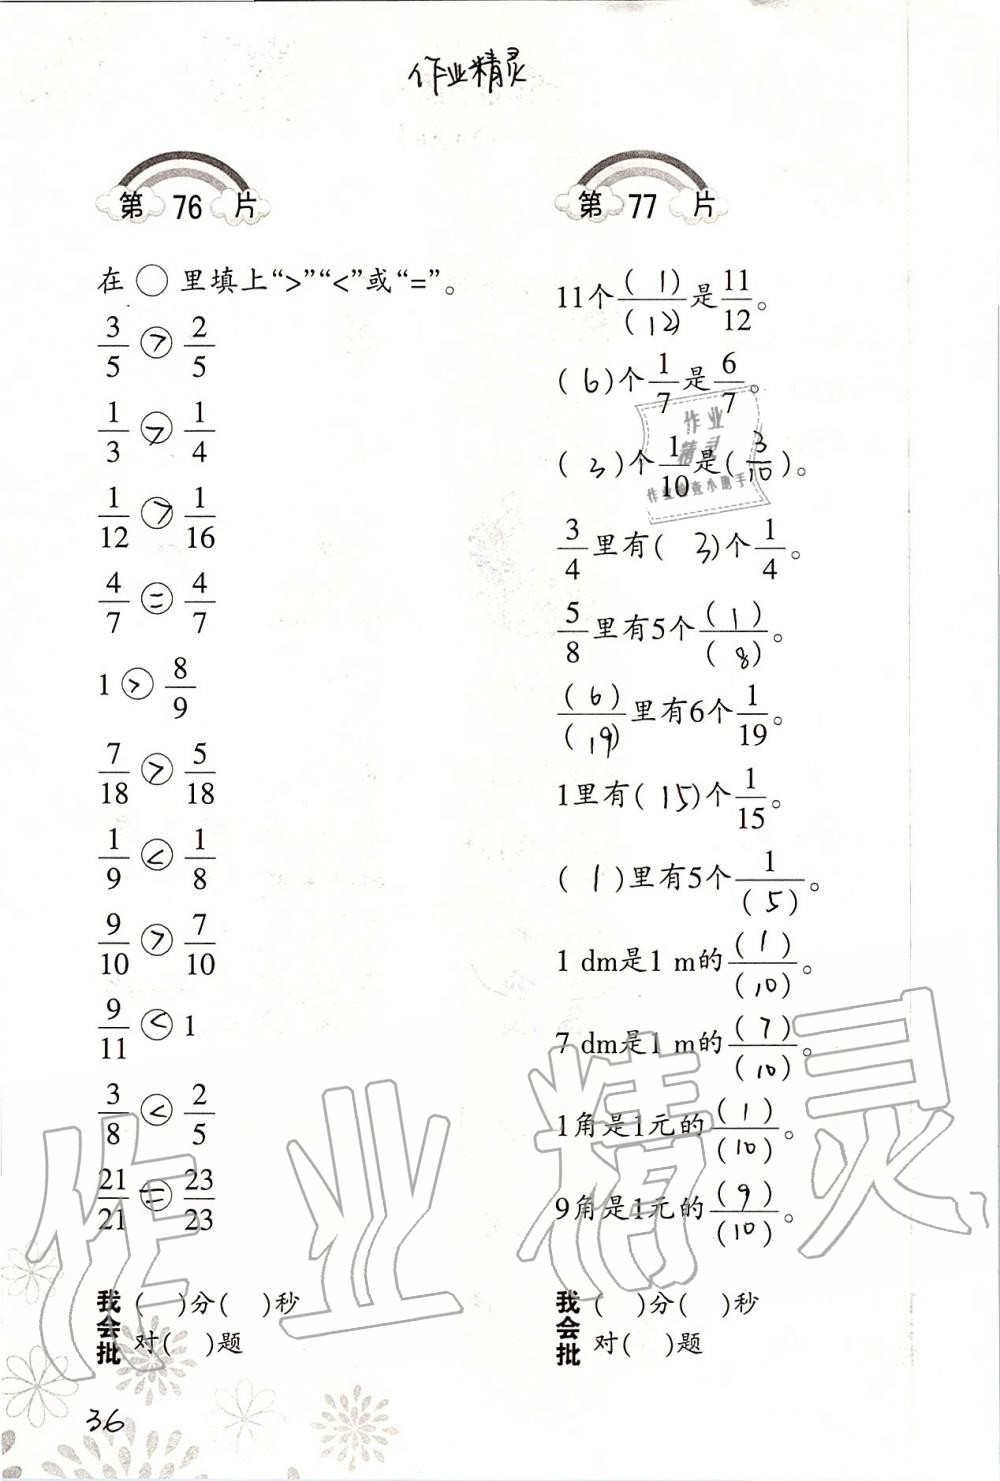 作业精灵
第 76 片
在 ○ 里填上“>”“<”或“=”。
3/5 > 2/5
1/3 > 1/4
1/12 > 1/16
4/7 = 4/7
1 > 8/9
7/18 > 5/18
1/9 < 1/8
9/10 > 7/10
9/11 < 1
3/8 < 2/5
21/21 = 23/23
我会批
( )分( )秒
对( )题
第 77 片
11个(1)/(12)是11/12。
(6)个1/7是6/7。
(3)个1/10是(3/10)。
3/4里有(3)个1/4。
5/8里有5个(1)/(8)。
(6)/(19)里有6个1/19。
1里有(15)个1/15。
(1)里有5个1/(5)。
1 dm是1 m的(1)/(10)。
7 dm是1 m的(7)/(10)。
1角是1元的(1)/(10)。
9角是1元的(9)/(10)。
我会批
( )分( )秒
对( )题
36
作业
精灵
作业检查小助手
作业精灵